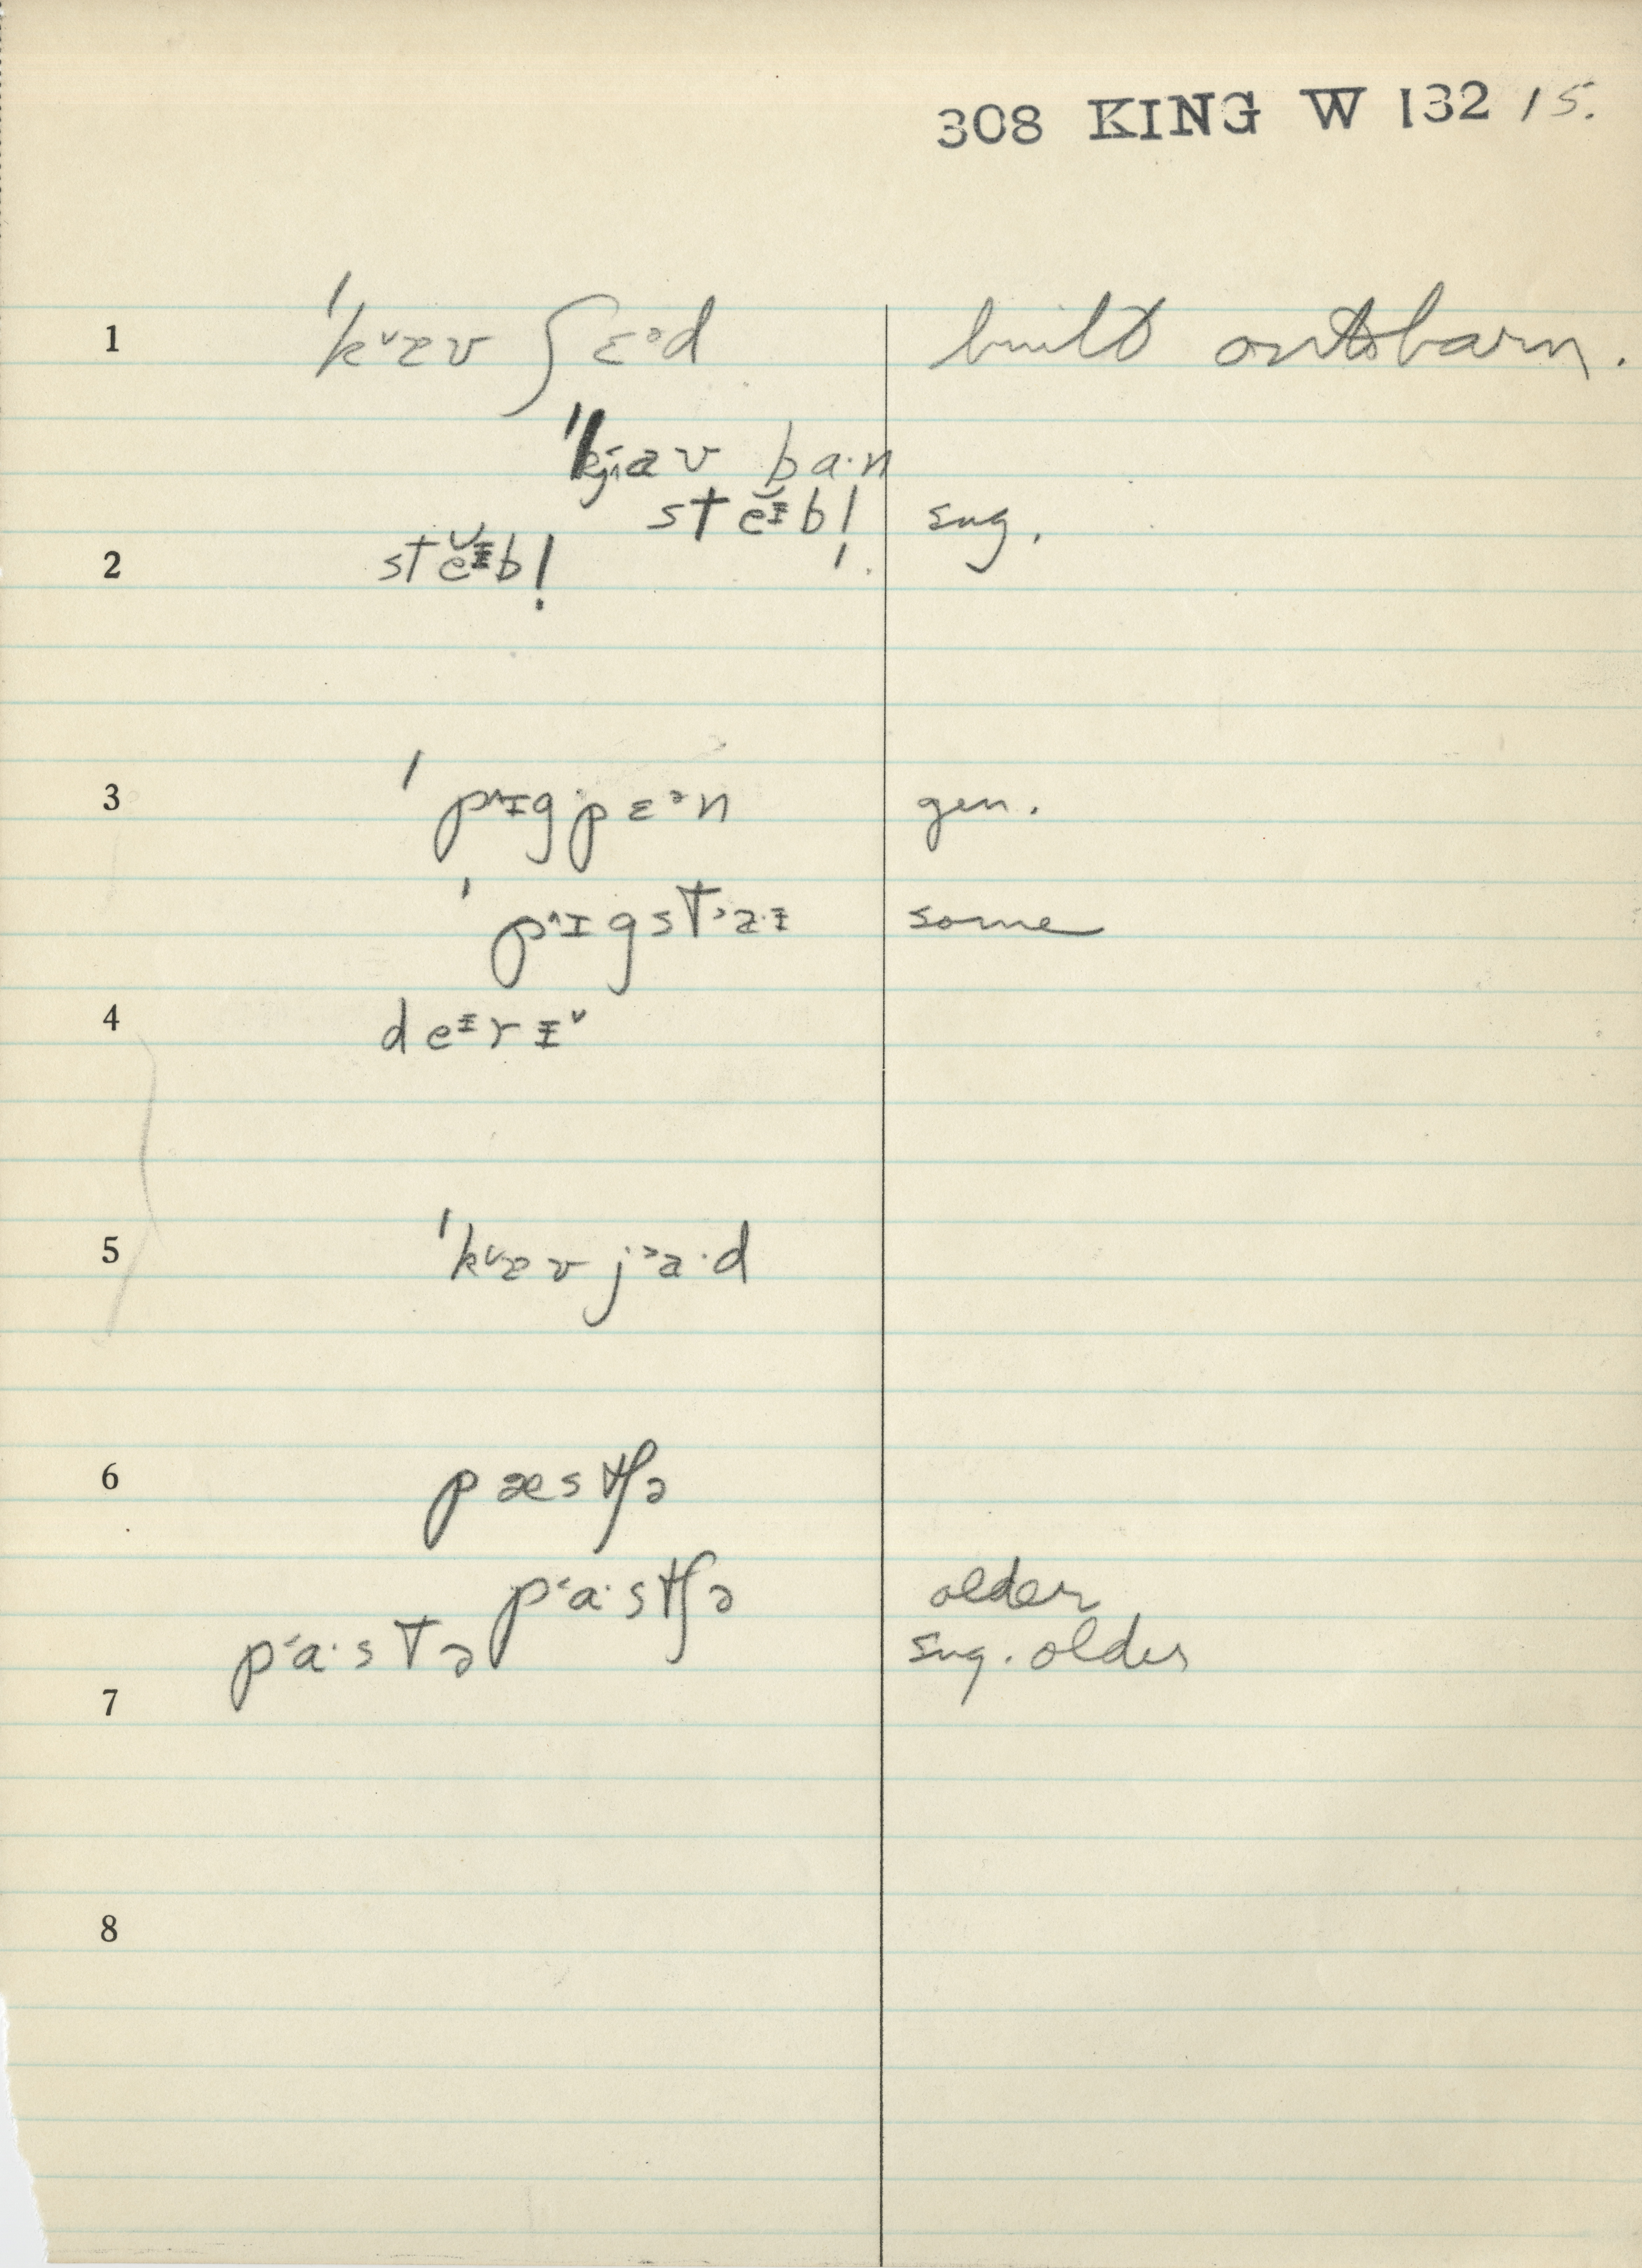 308 KING W 132 15.
1 ˈk˅æv ʃɛᵊd built onto barn.
ˈkjav ba·n
stĕᵻb! sug.
2 stĕᵻb!
3 ˈp˄ɪgpɛᵊn gen.
ˈp˄ɪgst˒a·ᵻ some
4 deᵻrᵻ˅
5 ˈk˅æv j˒a·d
6 pæstʃə
p˂a·stʃə older
p˂a·stə sug. older
7
8